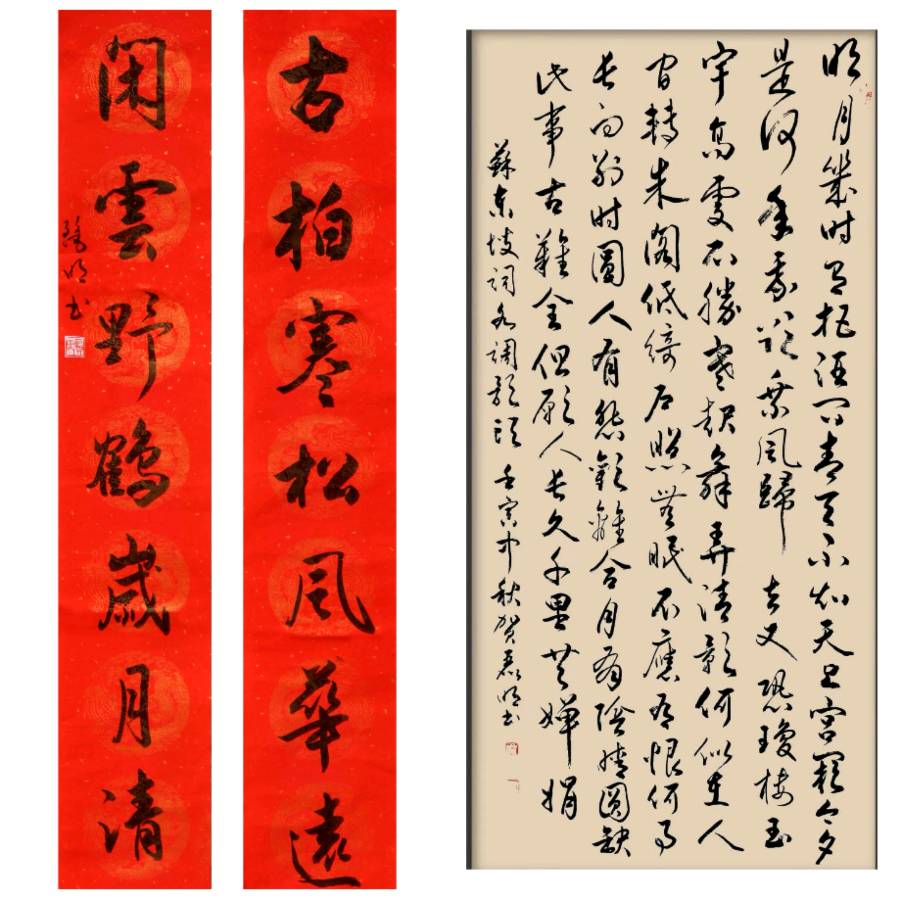 古柏寒松風華遠
閑雲野鶴歲月清
磊明书
明月幾时有把酒问青天不知天上宫阙今夕
是何年我欲乘風歸去又恐瓊楼玉
宇高處不勝寒起舞弄清影何似在人
间轉朱阁低绮户照無眠不應有恨何事
长向别时圓人有悲歡離合月有陰晴圓缺
此事古難全但願人长久千里共嬋娟
蘇东坡词水调歌头 壬寅中秋贺磊明书